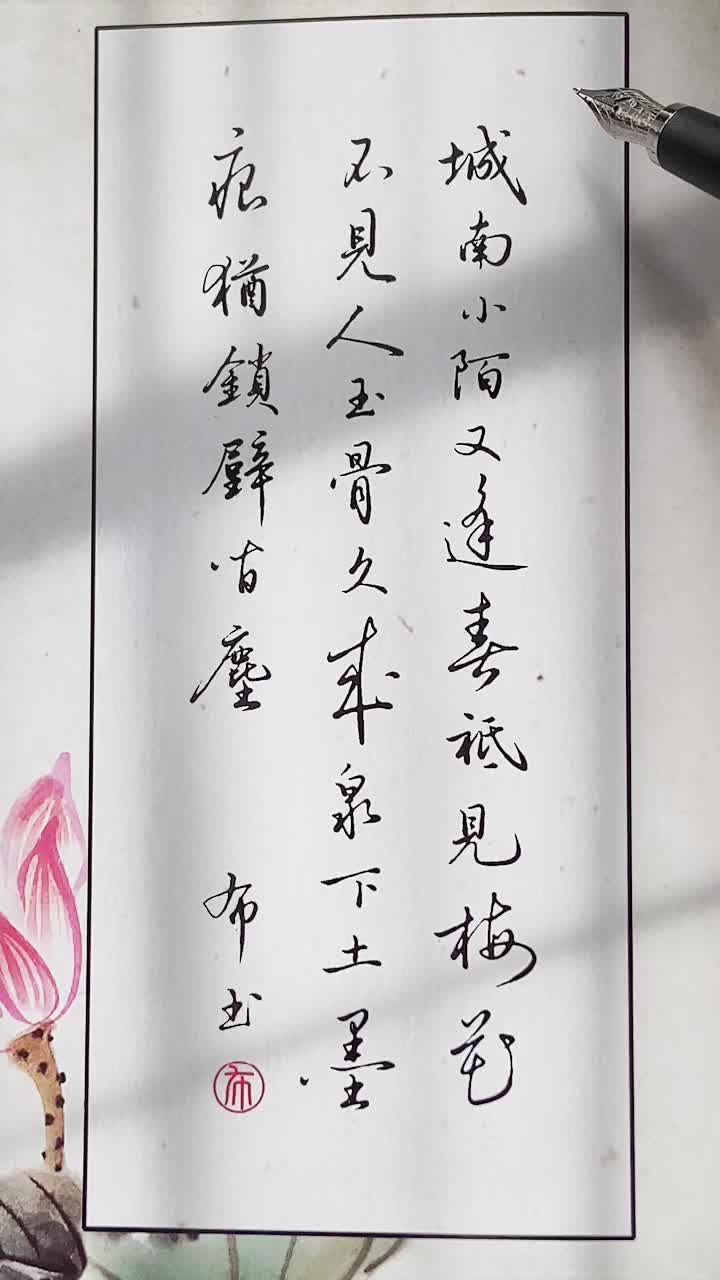 城南小陌又逢春祗見梅花
不見人玉骨久成泉下土墨
痕猶鎖壁間塵
布书
布